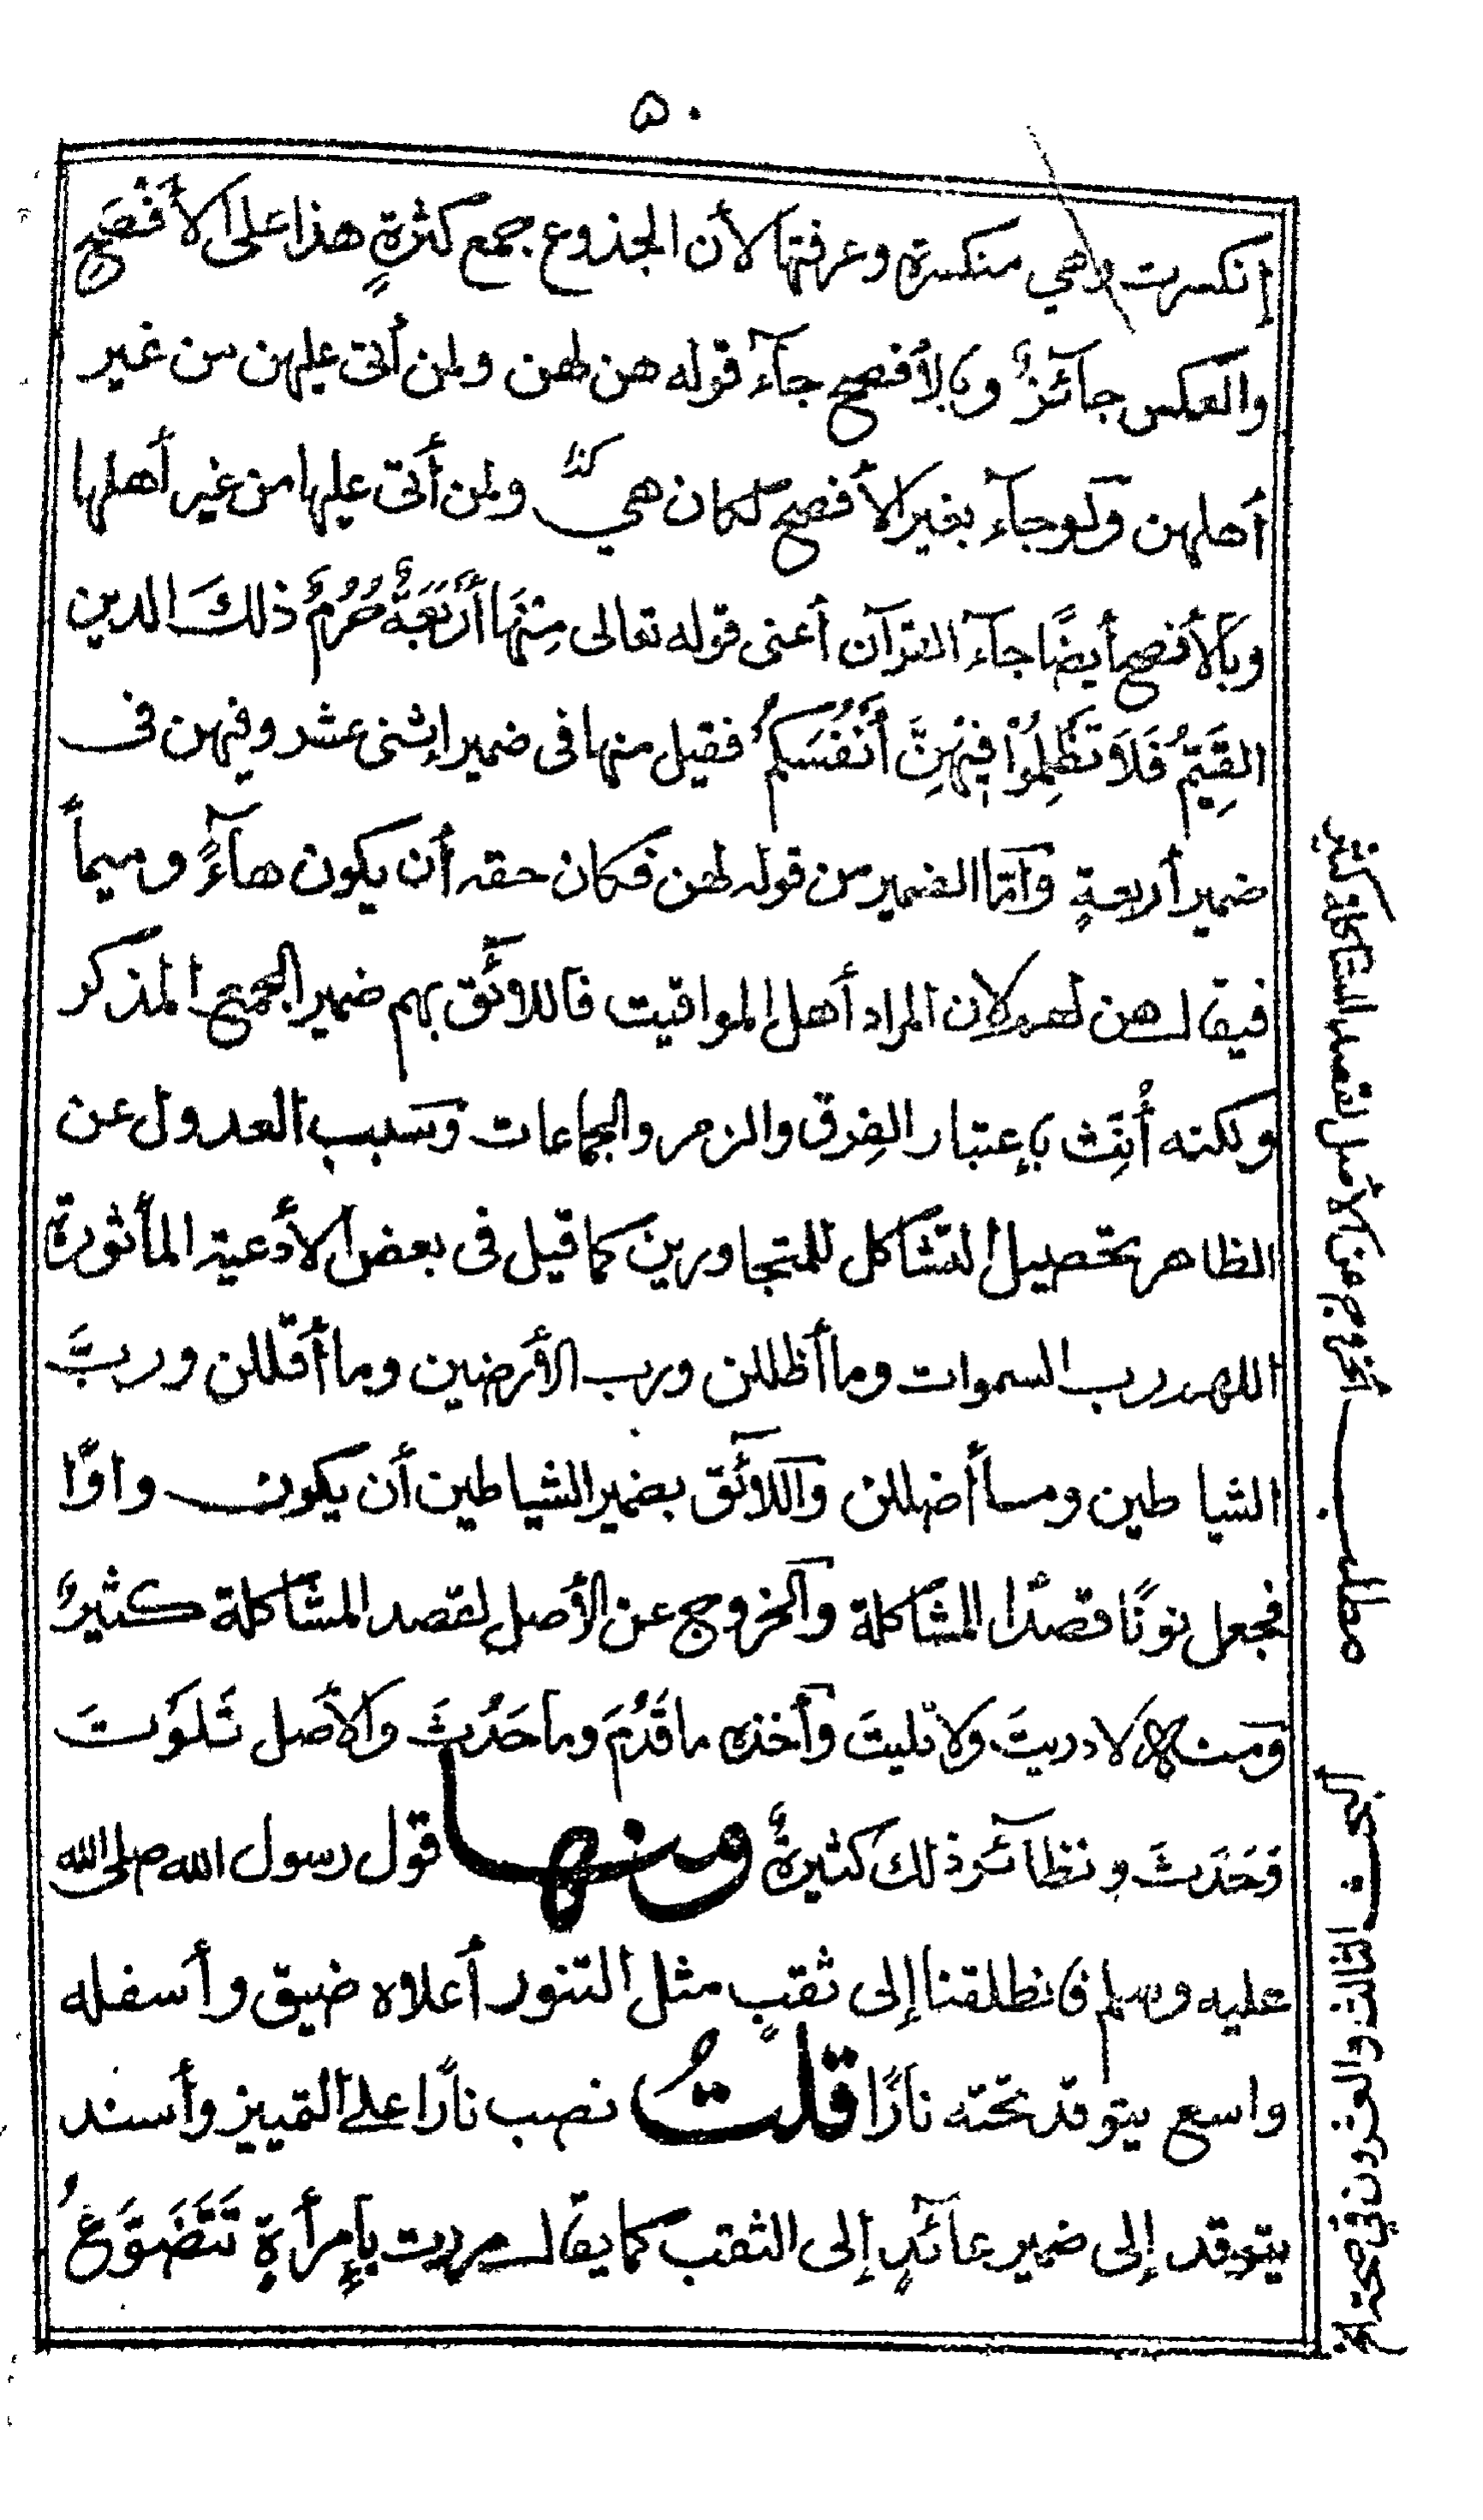 ٥٠
إنكسرت وهي منكسرة وعرفتها لأن الجذوع جمع كثرةٍ هذا على الأفصَحِ
والعكس جآئزٌ وبالأفصح جآءَ قوله هن لهن ولمن أتى عليهن من غير
أهلهن ولوجآء بغير الأفصح لكان هي لها ولمن أتى عليها من غير أهلها
وبالأفصح أيضًا جآءَ القرآن أعنى قوله تعالى مِنْهَا أَرْبَعَةٌ حُرُمٌ ذلكَ الدين
القَيِّمُ فَلَا تَظْلِمُوْا فِيْهِنَّ أَنْفُسَكُمْ فقيل منها فى ضمير إثنى عشر وفيهن فى
ضمير أربعةٍ وأمّا الضمير من قوله لهن فكان حقه أن يكون هآءً وميماً
فيقال هن لهم لان المراد أهل المواقيت فاللآئق بهم ضمير الجمع المذكر
ولكنه أُنِّث بإعتبار الفِرق والزمر والجماعات وسَبب العدول عن
الظاهر تحصيل التشاكل للمتجاورين كما قيل فى بعض الأدعية المأثورة
اللهم رب السموات وما أظللن ورب الأرضين وما أقللن وربَّ
الشياطين ومـا أضللن واللآئق بضمير الشياطين أن يكون واوًا
فجعل نونًا قصدًا للمشاكلة والخروج عن الأصل لقصد المشاكلة كثيرٌ
ومنه لا دريتَ ولا تليتَ وأخذه ما قَدُمَ وما حَدُثَ والأصل تَلَوْتَ
وَحَدَثَ ونظآئر ذلك كثيرةٌ ومنها قول رسول الله صلى الله
عليه وسلم فانطلقنا إلى ثقبٍ مثل التنور أعلاه ضيق وأسفله
واسع يتوقد تحته نارًا قلتُ نصب نارًا على التمييز وأسند
يتوقد إلى ضمير عآئدٍ إلى الثقب كما يقال مررت بإمرأةٍ تَتَضَوَّعُ
الخروج من الأصل لقصد المشاكلة كثير
مطلب